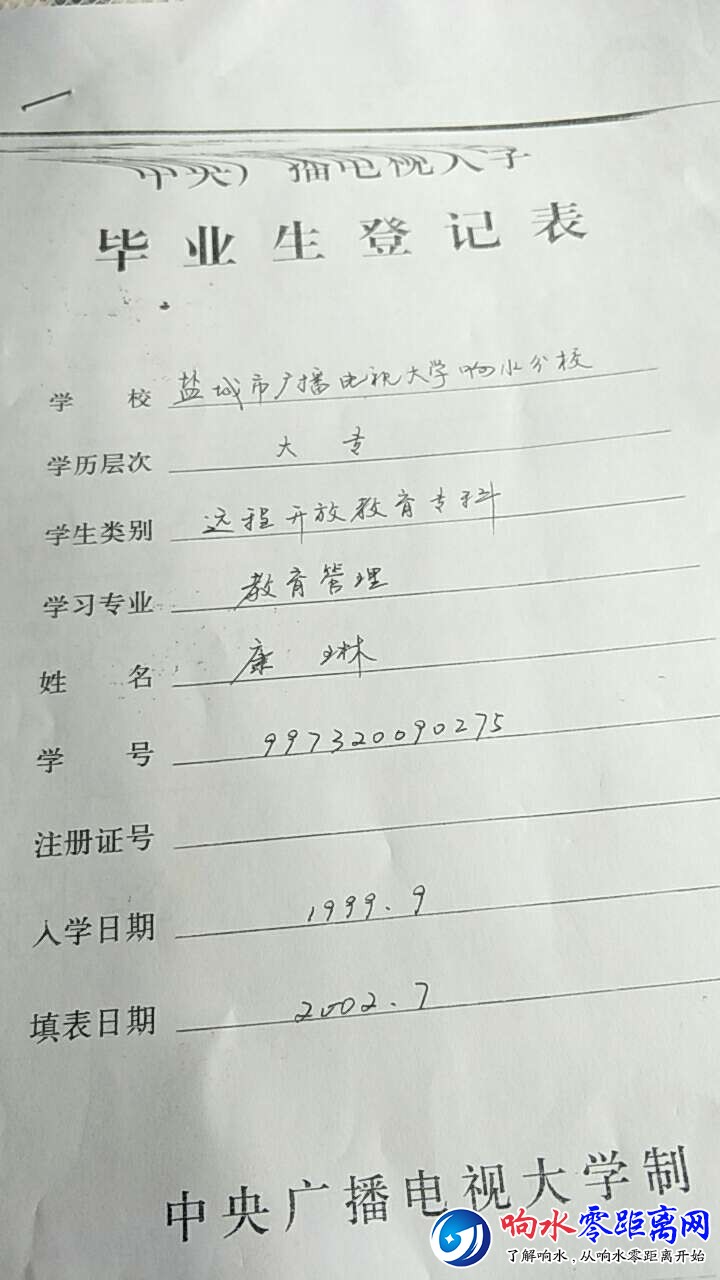 中央广播电视大学
毕业生登记表
学 校 盐城市广播电视大学响水分校
学历层次 大专
学生类别 远程开放教育专科
学习专业 教育管理
姓 名 康琳
学 号 997320090275
注册证号
入学日期 1999.9
填表日期 2002.7
中央广播电视大学制
响水零距离网
了解响水,从响水零距离开始